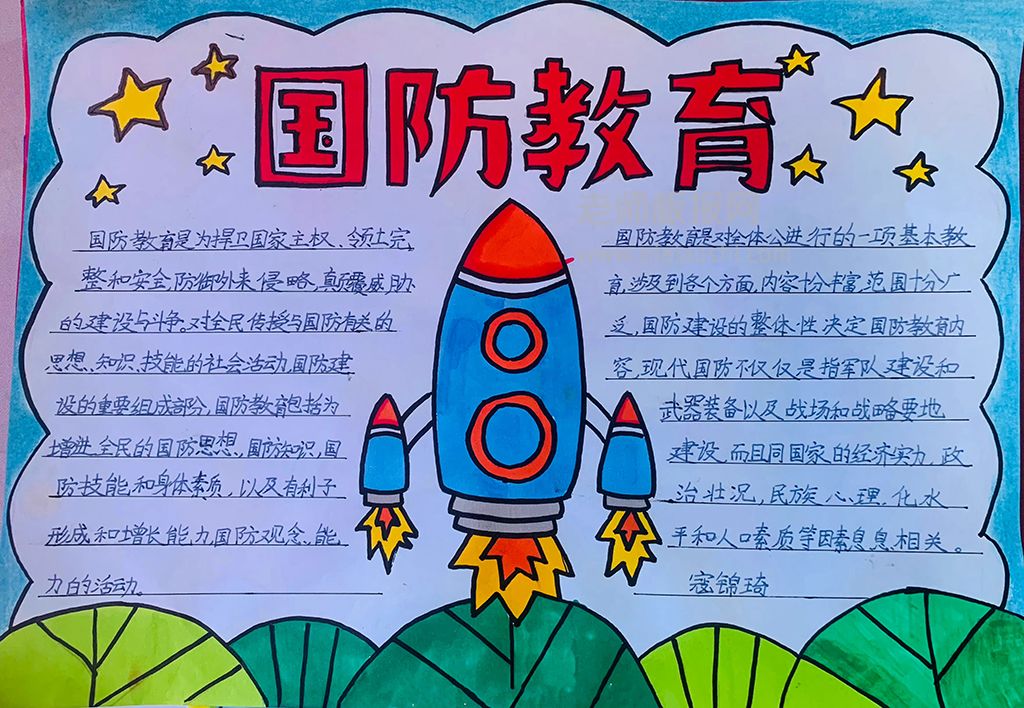 国防教育
国防教育是为捍卫国家主权、领土完
整和安全,防御外来侵略,颠覆威胁
的建设与斗争,对全民传授与国防有关的
思想、知识、技能的社会活动,国防建
设的重要组成部分,国防教育包括为
增进全民的国防思想,国防知识,国
防技能和身体素质,以及有利于
形成和增长能力国防观念、能
力的活动。
国防教育是对全体公进行的一项基本教
育,涉及到各个方面,内容十分丰富,范围十分广
乏,国防建设的整体性决定国防教育内
容,现代国防不仅仅是指军队建设和
武器装备以及战场和战略要地
建设,而且同国家的经济实力,政
治壮况,民族心理,化水
平和人口素质等因素息息相关。
寇锦琦